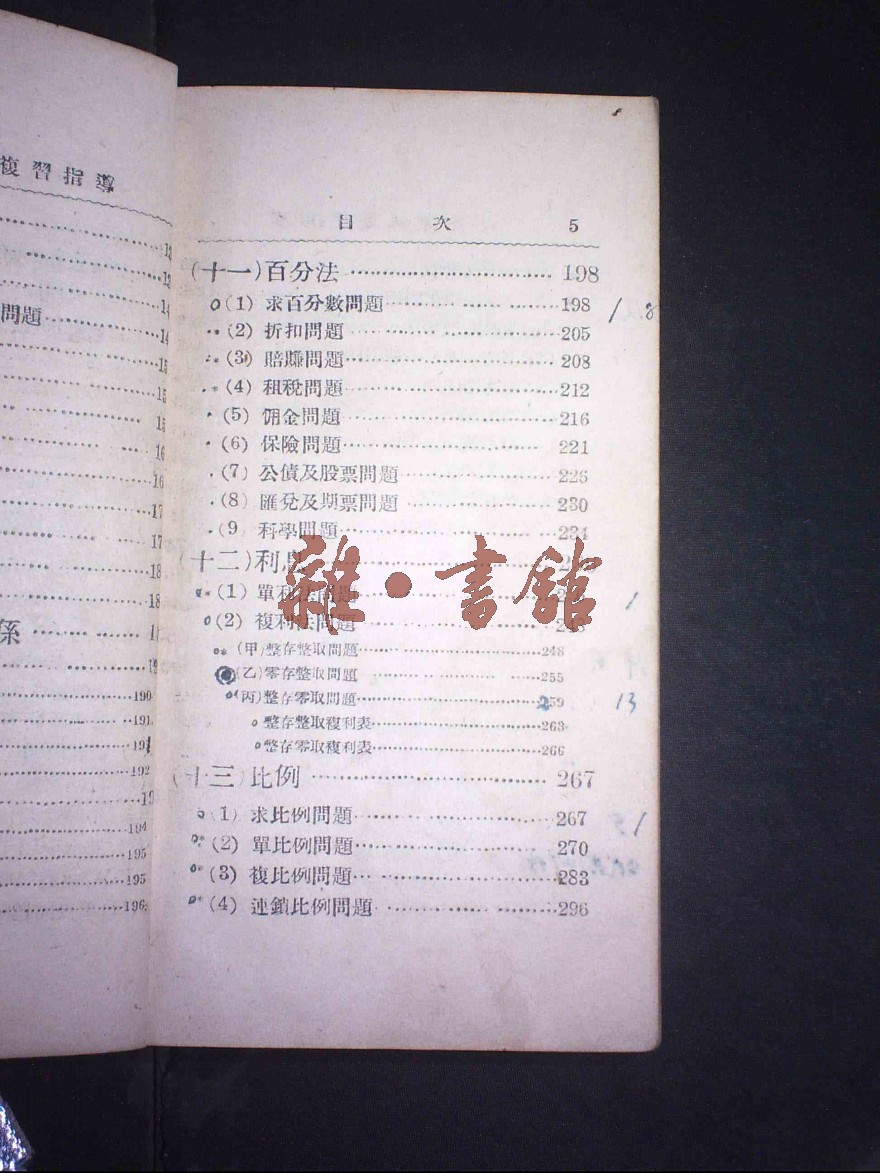 複習指導
問題
係
190
191
192
194
195
195
196
目 次 5
(十一)百分法 198
(1) 求百分數問題 198
(2) 折扣問題 205
(3) 賠賺問題 208
(4) 租稅問題 212
(5) 佣金問題 216
(6) 保險問題 221
(7) 公債及股票問題 226
(8) 匯兌及期票問題 230
(9) 科學問題 234
(十二)利息
(1) 單利法問題
(2) 複利法問題 248
(甲)整存整取問題 248
(乙)零存整取問題 255
(丙)整存零取問題 259
整存整取複利表 263
整存零取複利表 266
(十三)比例 267
(1) 求比例問題 267
(2) 單比例問題 270
(3) 複比例問題 283
(4) 連鎖比例問題 296
13
雜·書館